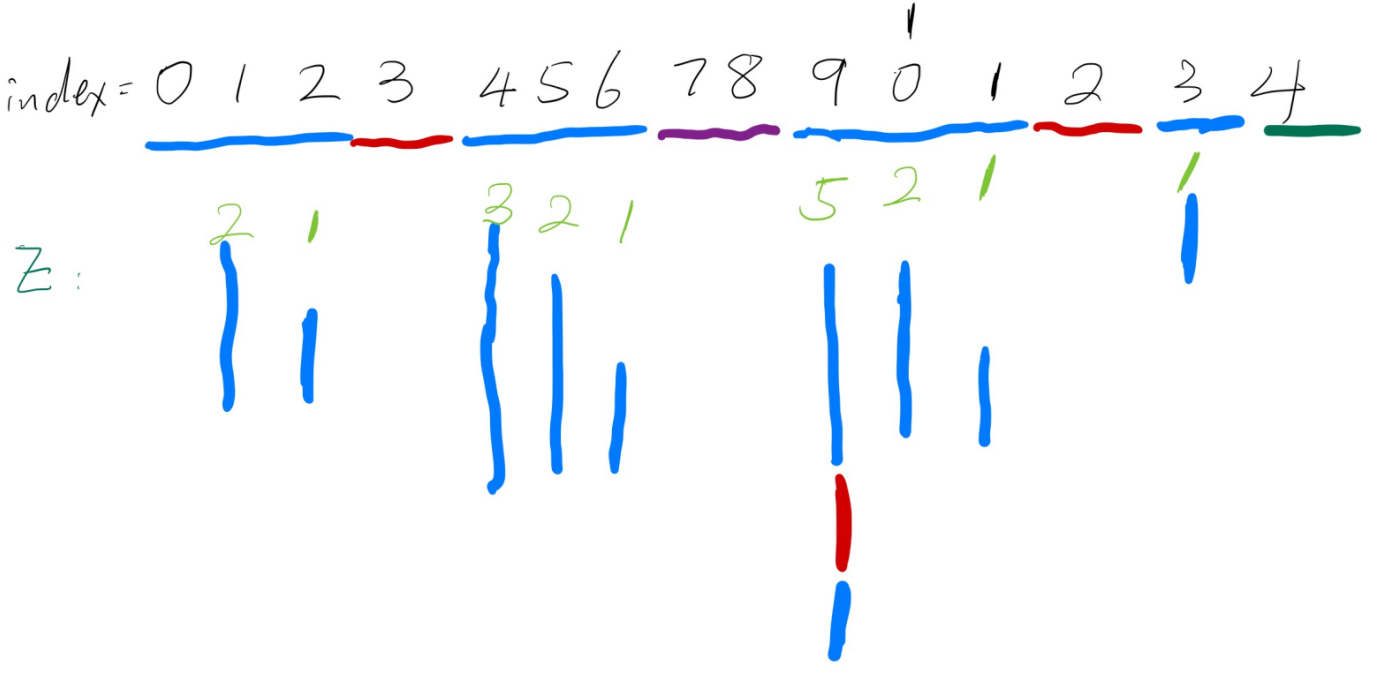 1
index= 0 1 2 3 4 5 6 7 8 9 0 1 2 3 4
2 1 3 2 1 5 2 1 1
Z :